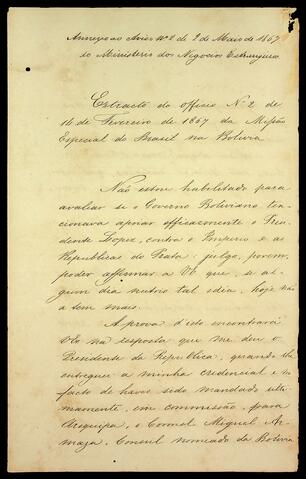 Annexo ao Aviso Nº 2 de 2 de Maio de 1867
do Ministerio dos Negocios Estrangeiros
Extracto do officio Nº 2 de
16 de Fevereiro de 1867 da Missão
Especial do Brasil na Bolivia
Não estou habilitado para
avaliar se o Governo Boliviano ten-
cionava apoiar efficazmente o Presi-
dente Lopez, contra o Imperio e as
Republicas do Prata: julgo, porem,
poder affirmar a VExª que, se al-
gum dia nutrio tal idéa, hoje não
a tem mais.
A prova d'isto encontrará
VExª na resposta que me deu o
Presidente da Republica, quando lhe
entreguei a minha credencial e no
facto de haver sido mandado ulti-
mamente, em commissão, para
Arequipa, o Coronel Miguel Ar-
maza, Consul nomeado da Bolivia